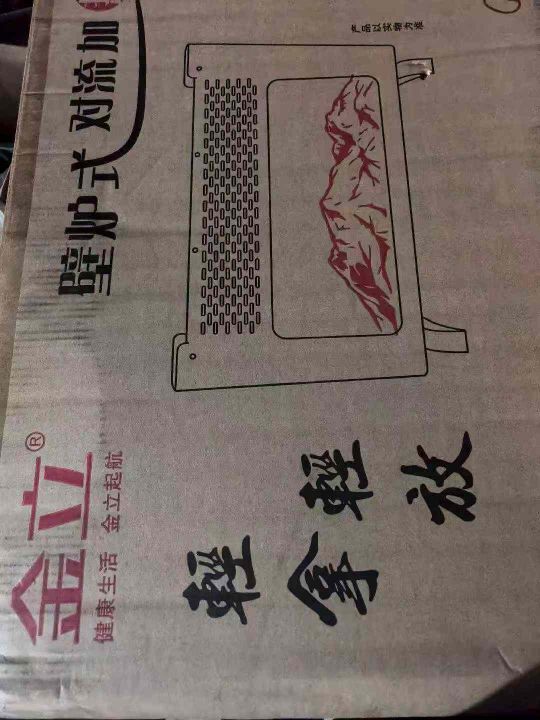 金立®
健康生活 金立起航
壁炉式 对流加
产品以实物为准
輕拿
輕放